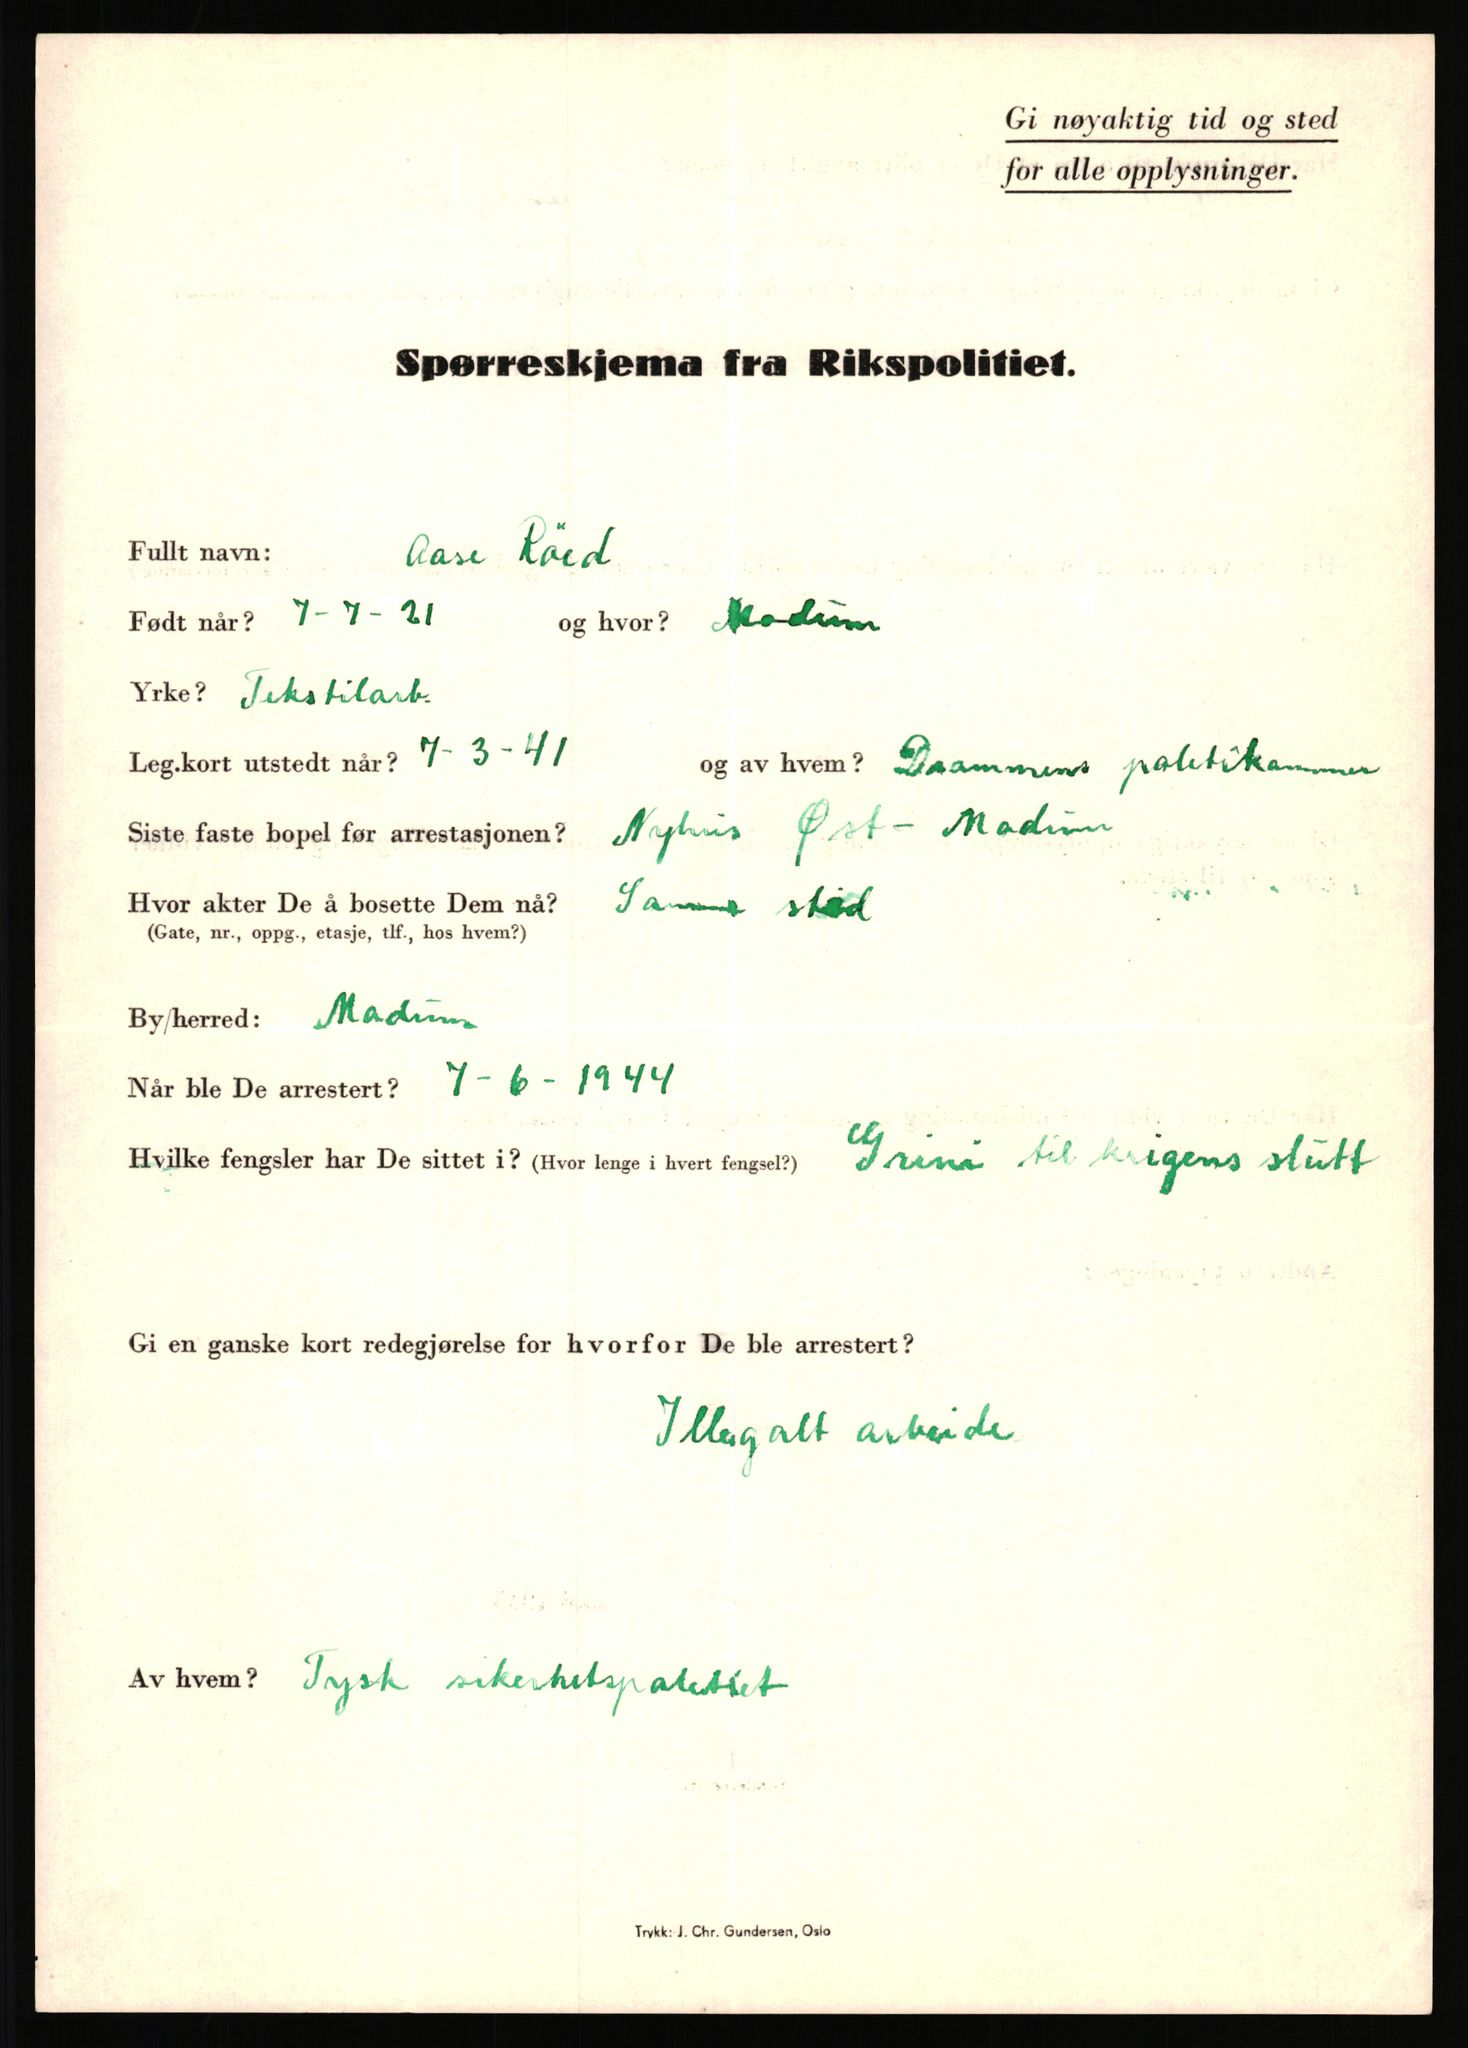 Gi nøyaktig tid og sted
for alle opplysninger.
Spørreskjema fra Rikspolitiet.
Fullt navn: Aase Röed
Født når? 7-7-21 og hvor? Modum
Yrke? Tekstilarb.
Leg.kort utstedt når? 7-3-41 og av hvem? Drammens politikammer
Siste faste bopel før arrestasjonen? Nyhus Øst- Modum
Hvor akter De å bosette Dem nå? Samme sted
(Gate, nr., oppg., etasje, tlf., hos hvem?)
By/herred: Modum
Når ble De arrestert? 7-6-1944
Hvilke fengsler har De sittet i? (Hvor lenge i hvert fengsel?) Grini til krigens slutt
Gi en ganske kort redegjørelse for hvorfor De ble arrestert?
Illegalt arbeide
Av hvem? Tysk sikerhetspolitiet
Trykk: J. Chr. Gundersen, Oslo